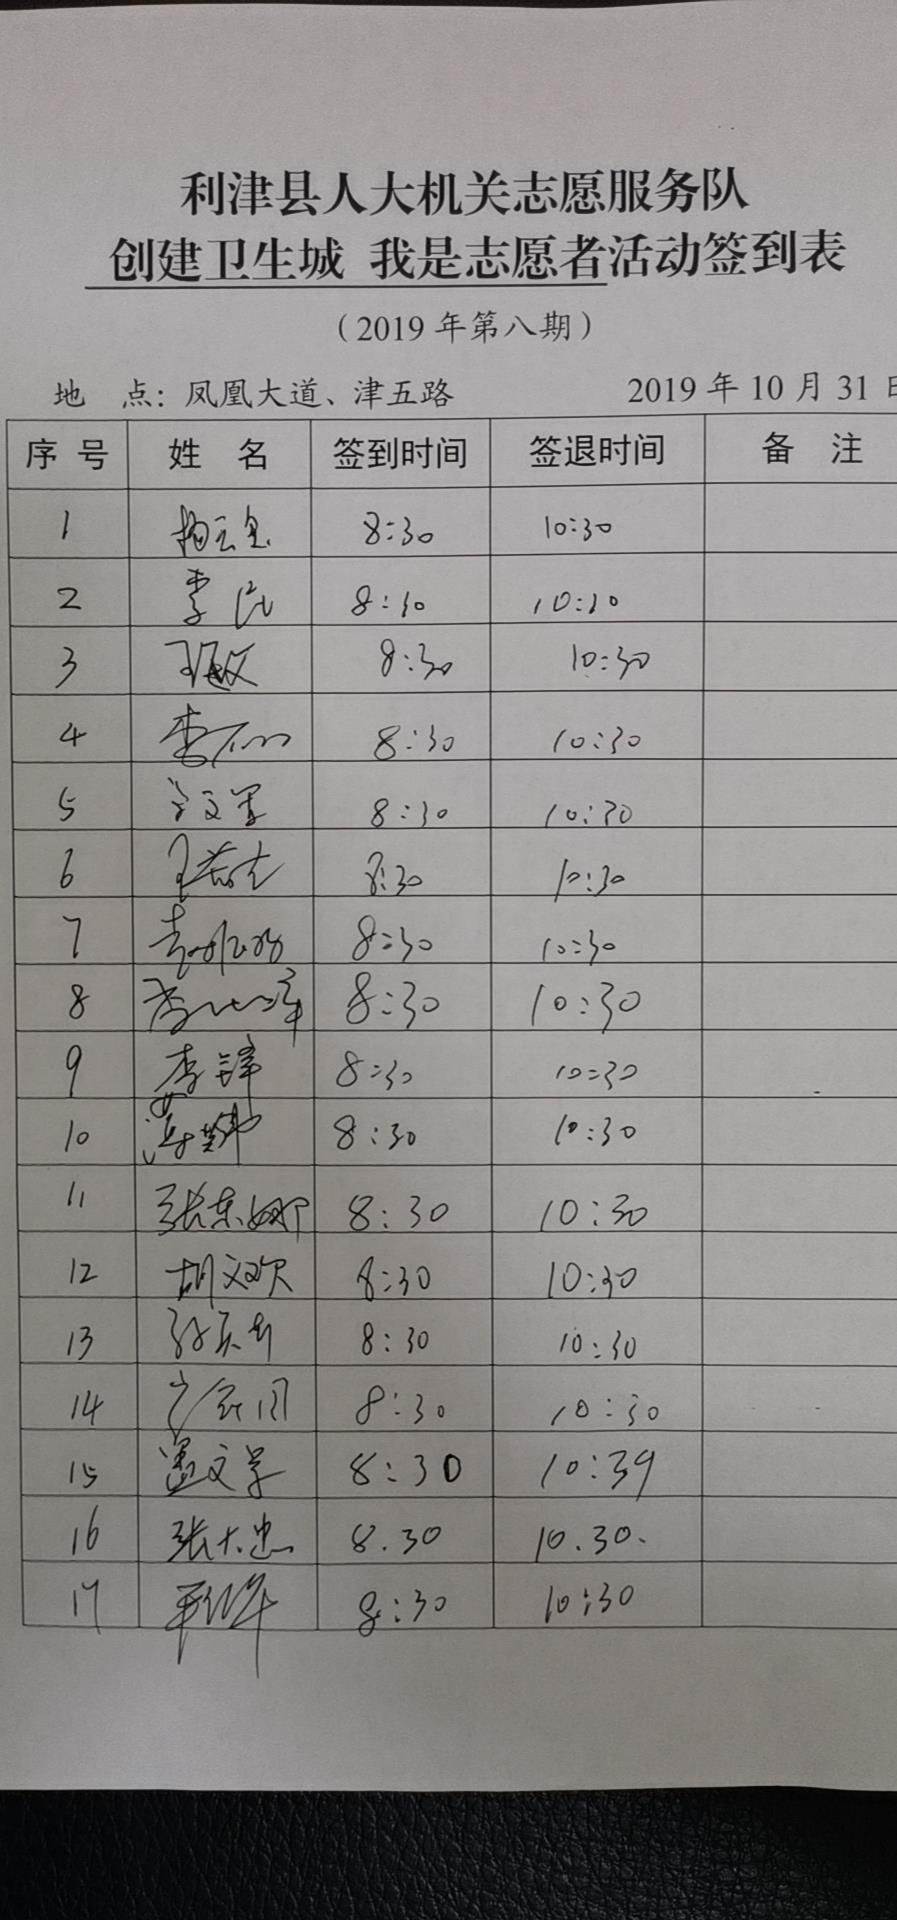 利津县人大机关志愿服务队
创建卫生城 我是志愿者活动签到表
（2019 年第八期）
地 点：凤凰大道、津五路 2019 年 10 月 31 日
序 号 姓 名 签到时间 签退时间 备 注
1 8:30 10:30
2 李 8:30 10:30
3 8:30 10:30
4 李 8:30 10:30
5 8:30 10:30
6 王 8:30 10:30
7 8:30 10:30
8 李 8:30 10:30
9 李 8:30 10:30
10 8:30 10:30
11 张东娜 8:30 10:30
12 胡文欢 8:30 10:30
13 8:30 10:30
14 8:30 10:30
15 盖文学 8:30 10:39
16 张大忠 8.30 10.30.
17 8:30 10:30